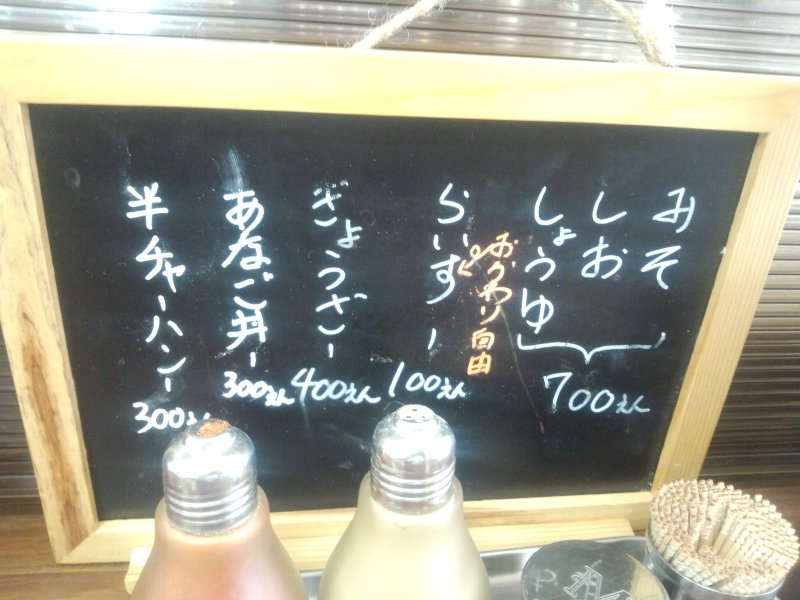 みそ
しお
しょうゆ
700えん
おかわり自由
らいすー
100えん
ぎょうざー
400えん
あなご丼ー
300えん
半チャーハンー
300えん